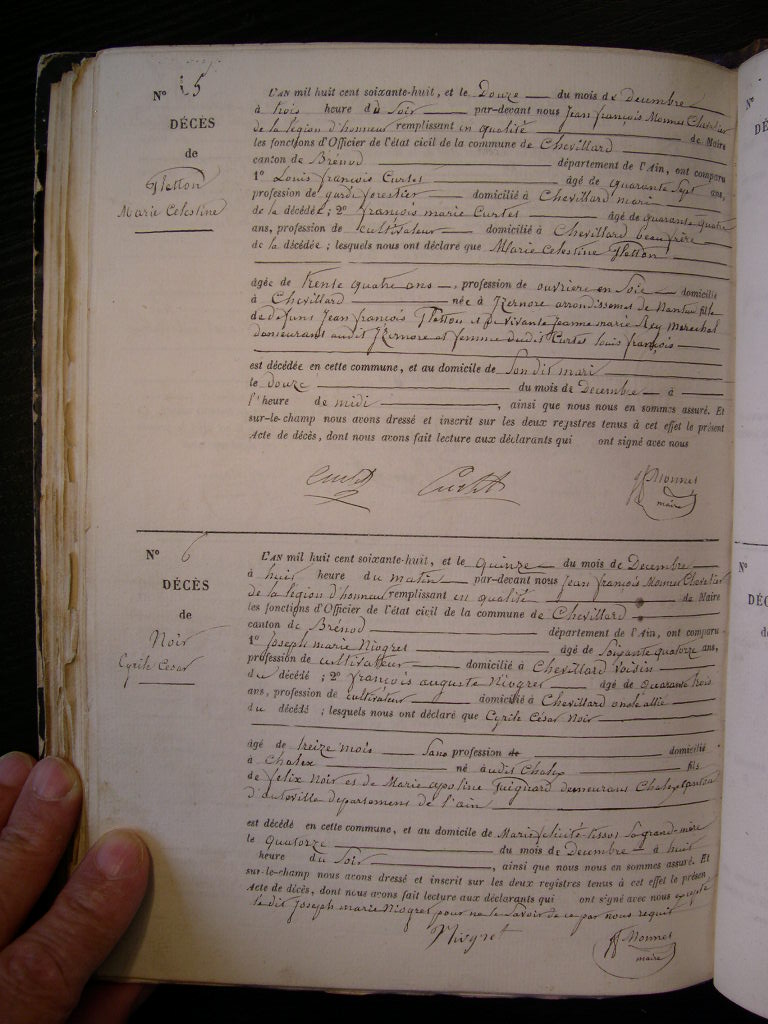 N° 5
DÉCÈS
de
Fletton
Marie Celestine
L'AN mil huit cent soixante-huit, et le Douze du mois de Decembre
à trois heure du Soir par-devant nous Jean françois Monnet Chevalier
de la légion d'honneur remplissant en qualité de Maire
les fonctions d'Officier de l'état civil de la commune de Chevillard
canton de Brénod département de l'Ain, ont comparu
1° Louis françois Curtet âgé de quarante Sept ans,
profession de garde forestier domicilié à Chevillard mari
de la décédée ; 2° françois marie Curtet âgé de quarante quatre
ans, profession de cultivateur domicilié à Chevillard beau frère
de la décédée ; lesquels nous ont déclaré que Marie Celestine Fletton
âgée de trente quatre ans, profession de ouvriere en Soie domicilié
à Chevillard née à Izernore arrondissement de Nantua fille
de defunt Jean françois Fletton et de vivante Jeanne marie Rey Marechal
demeurant audit Izernore et femme dudit Curtet louis françois
est décédée en cette commune, et au domicile de Son dit mari
le douze du mois de Decembre à
l'heure de midi, ainsi que nous nous en sommes assuré. Et
sur-le-champ nous avons dressé et inscrit sur les deux registres tenus à cet effet le présent
Acte de décès, dont nous avons fait lecture aux déclarants qui ont signé avec nous
Curtet Curtet Monnet
maire
N° 6
DÉCÈS
de
Noir
Cyrile Cesar
L'AN mil huit cent soixante-huit, et le quinze du mois de Decembre
à huit heure du matin par-devant nous Jean françois Monnet Chevalier
de la légion d'honneur remplissant en qualité de Maire
les fonctions d'Officier de l'état civil de la commune de Chevillard
canton de Brénod département de l'Ain, ont comparu
1° Joseph marie Niogret âgé de Soixante quatorze ans,
profession de cultivateur domicilié à Chevillard voisin
du décédé ; 2° françois auguste Niogret âgé de quarante trois
ans, profession de cultivateur domicilié à Chevillard oncle allié
du décédé ; lesquels nous ont déclaré que Cyrile César Noir
âgé de treize mois Sans profession de domicilié
à Chaley né audit Chaley fils
de felix Noir et de Marie apoline Guignard demeurant Chaley canton
d'autoville departement de l'ain
est décédé en cette commune, et au domicile de Marie felicité tissot Sa grand-mère
le quatorze du mois de Decembre à huit
heure du Soir, ainsi que nous nous en sommes assuré. Et
sur-le-champ nous avons dressé et inscrit sur les deux registres tenus à cet effet le présen
Acte de décès, dont nous avons fait lecture aux déclarants qui ont signé avec nous excepté
le dit Joseph marie Niogret pour ne le Savoir de ce par nous requit
Niogret Monnet
maire